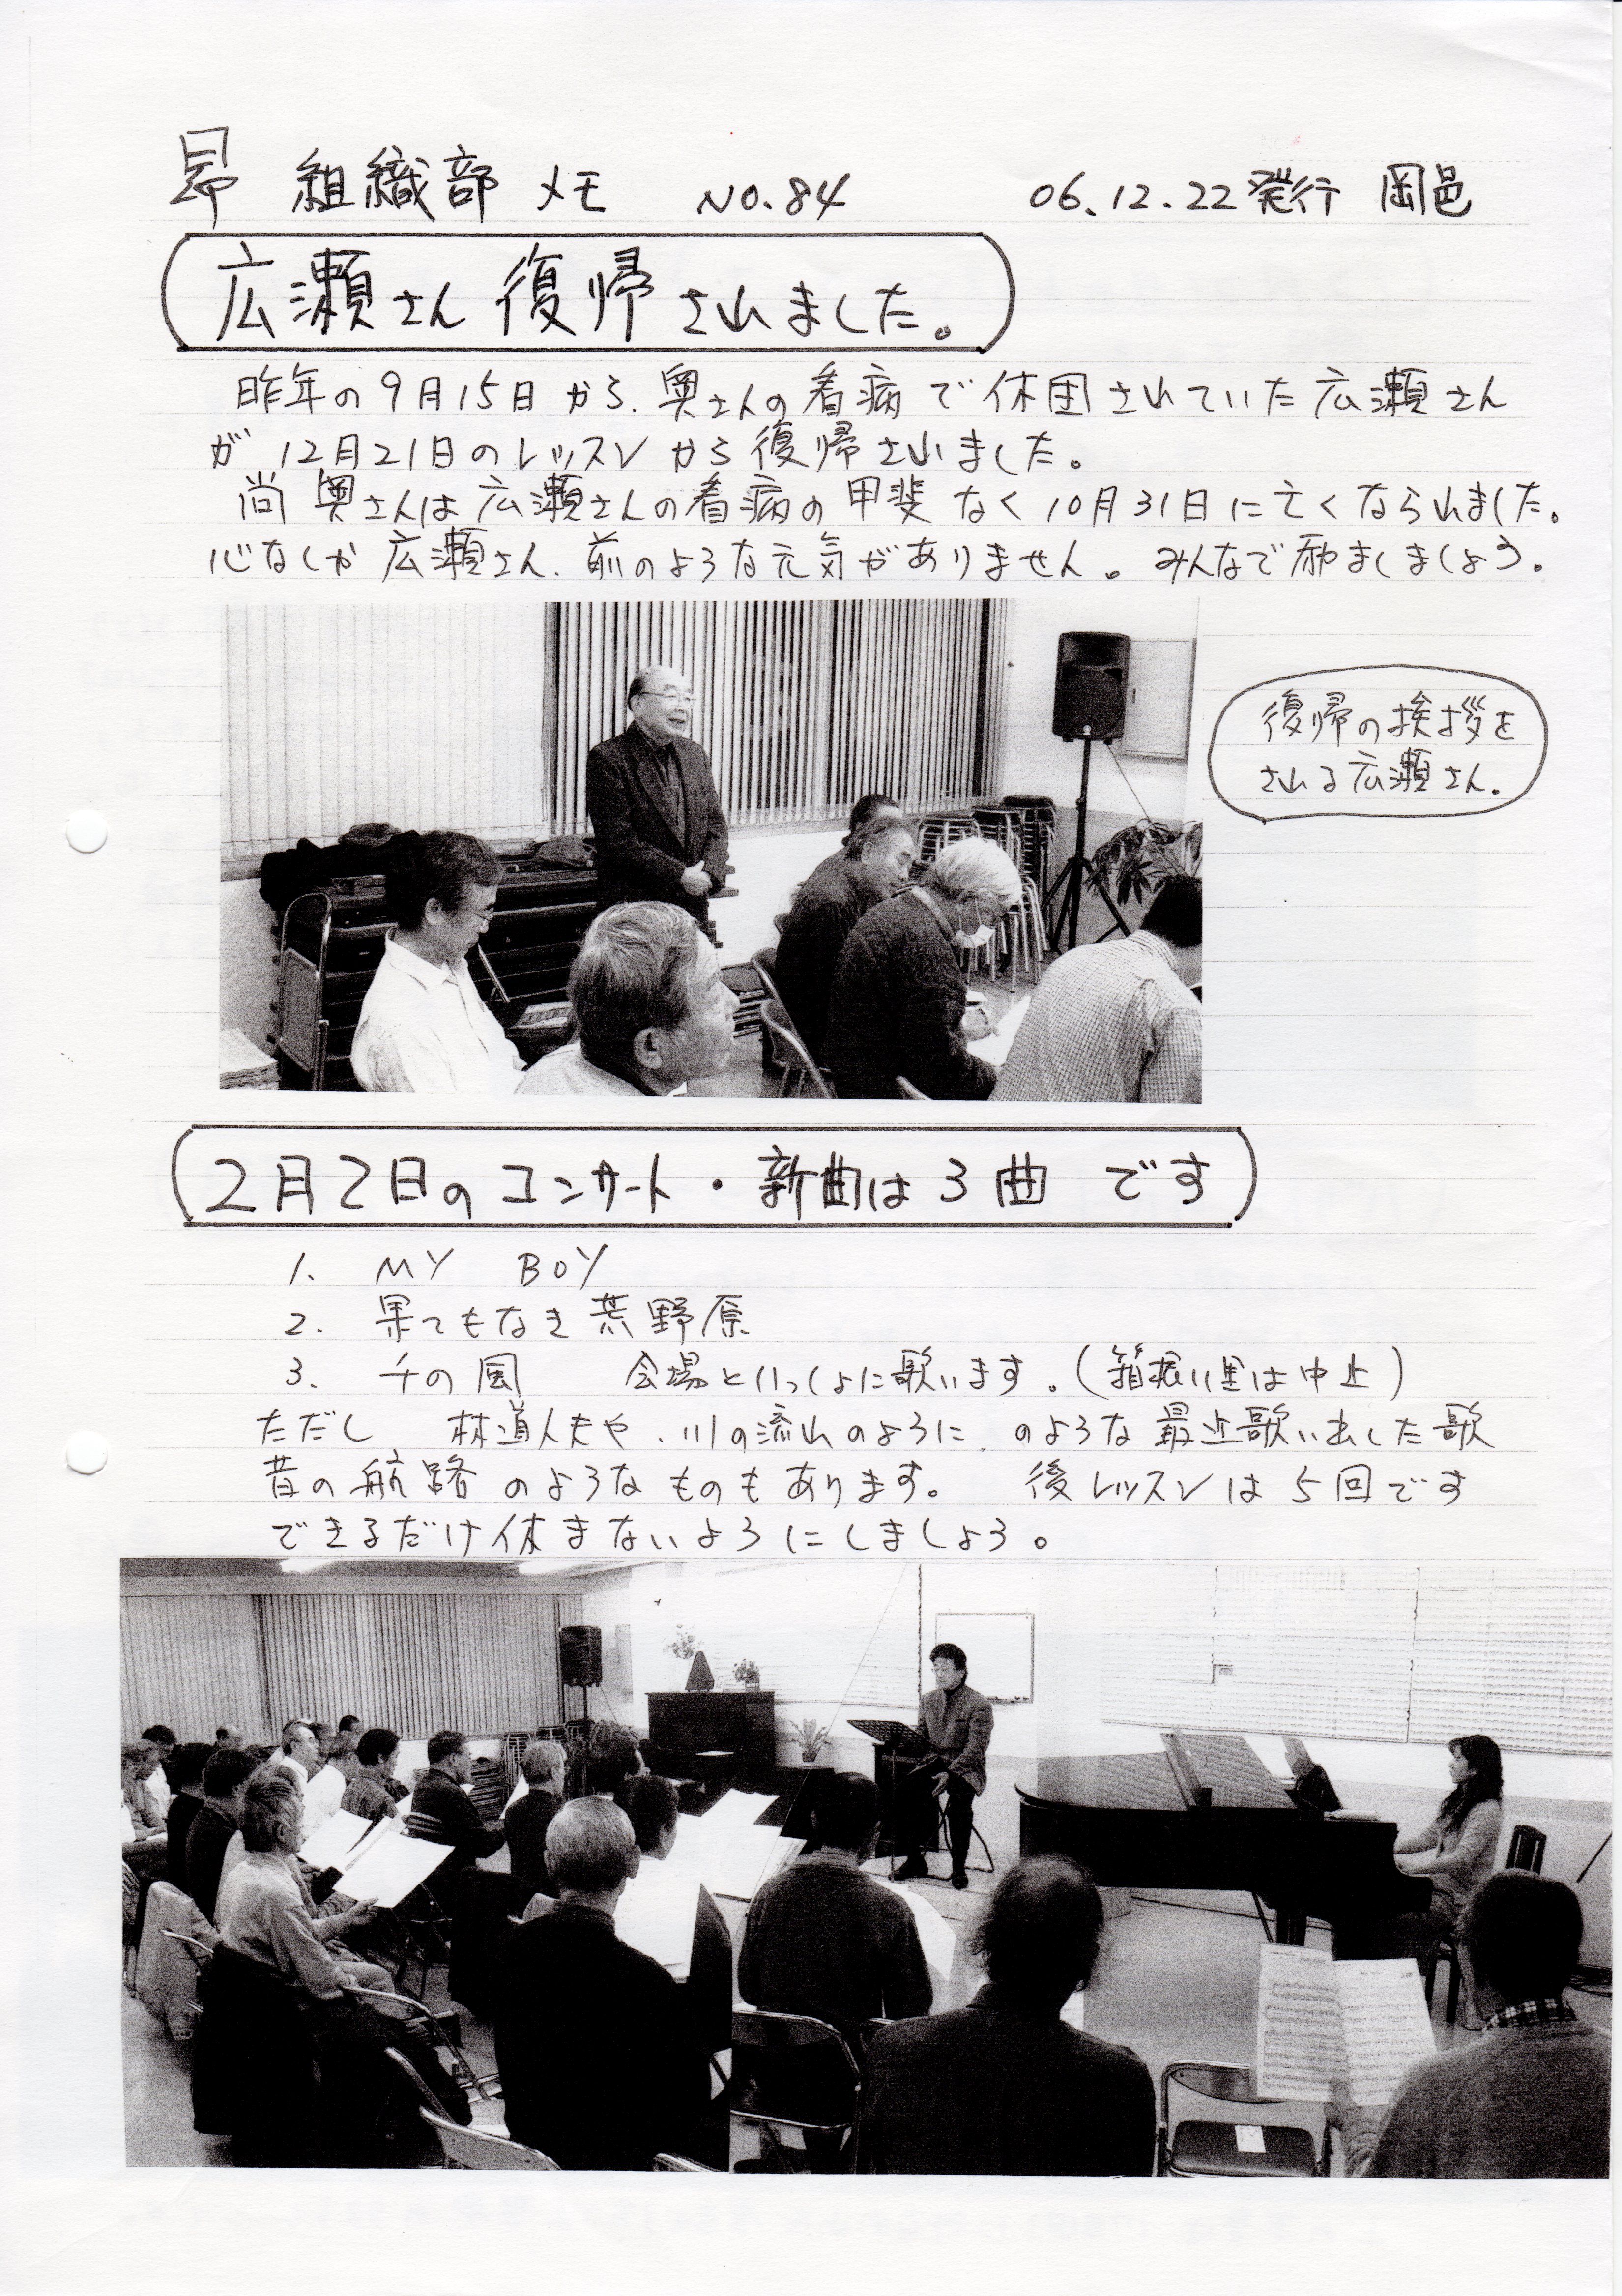 昴 組織部 メモ NO.84 06.12.22発行 岡邑
広瀬さん復帰されました。
昨年の9月15日から、奥さんの看病で休団されていた広瀬さん
が12月21日のレッスンから復帰されました。
尚奥さんは広瀬さんの看病の甲斐なく10月31日に亡くなられました。
心なしか広瀬さん、前のような元気がありません。みんなで励ましましょう。
復帰の挨拶を
される広瀬さん。
2月2日のコンサート・新曲は3曲です
1. MY BOY
2. 果てもなき荒野原
3. 千の風 会場といっしょに歌います。(箱根八里は中止)
ただし 林道人夫や、川の流れのように、のような最近歌い出した歌
昔の航路のようなものもあります。 後レッスンは5回です
できるだけ休まないようにしましょう。